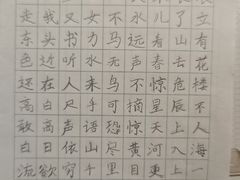 走我又女不水儿了立
东头书力马远看山有
色近听水无声春去花
还在人来鸟不惊危楼
高白尺手可摘星辰不
敢高声语恐惊天上人
白日依山尽黄河入海
流欲穷千里目更上一